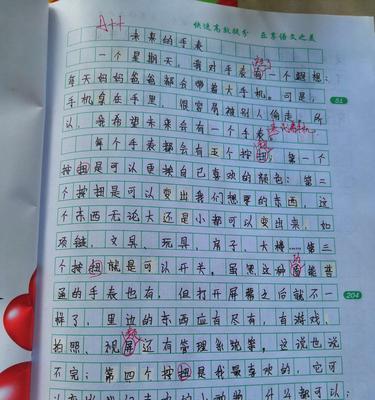 A++
快速高效提分 乐享语文之美
未来的手表
一个星期天，我对手表有一个联想：
每天妈妈爸爸都会带着大手机。可是，
手机拿在手里，很容易被别人偷走。所
以，我希望未来会有一个手表。
51
每个手表都会有五个按扭，第一个
按扭是可以更换自己喜欢的颜色；第二
个按扭是可以变出我们想要的东西，这
个东西无论大还是小都可以变出来，如
项链，文具、玩具，房子，大楼……第三
个按扭就是可以开关。虽然这种功能普
通的手表也有，但打开屏幕之后就不一
204
样了，里边的东西应有尽有，有游戏，
拍照、视屏还有管理系统等。这说也说
不完；第四个按扭是我最喜欢的，它可